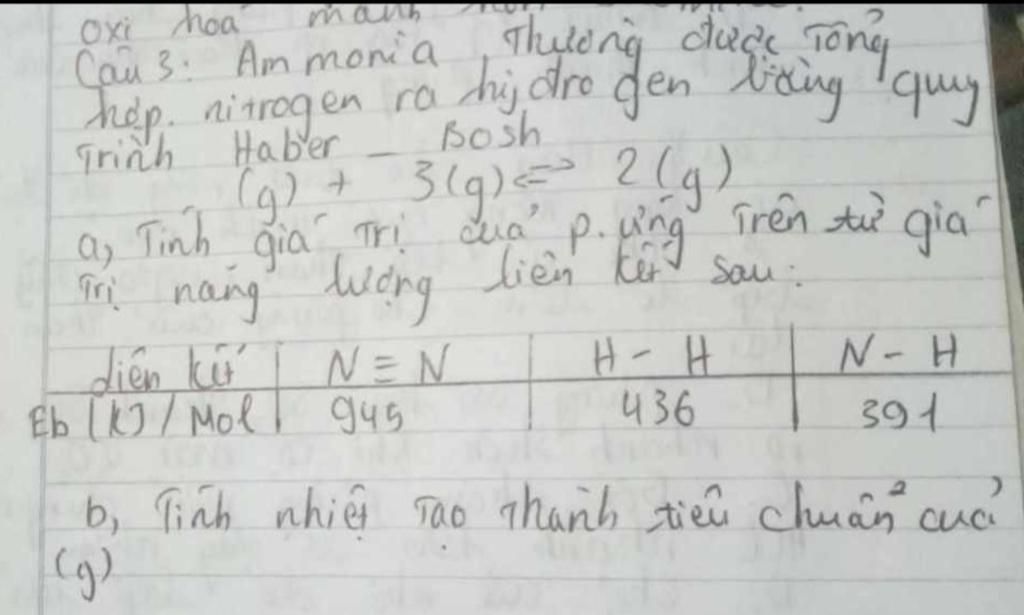 oxi hoá mạnh
Câu 3: Ammonia Thường được Tổng
hợp. nitrogen ra hyđrogen bằng quy
Trình Haber - Bosh
(g) + 3(g) ⇌ 2(g)
a, Tính giá Trị của p.ứng Trên từ giá
Trị năng lượng liên kết sau:
liên kết | N ≡ N | H - H | N - H
Eb (KJ / Mol | 945 | 436 | 391
b, Tính nhiệt Tạo Thành tiêu chuẩn của
(g)